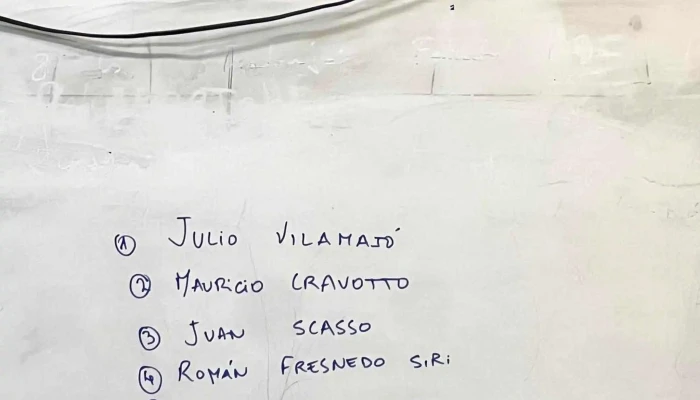 ① JULIO VILAMAJÓ
② MAURICIO CRAVOTTO
③ JUAN SCASSO
④ ROMÁN FRESNEDO SIRI